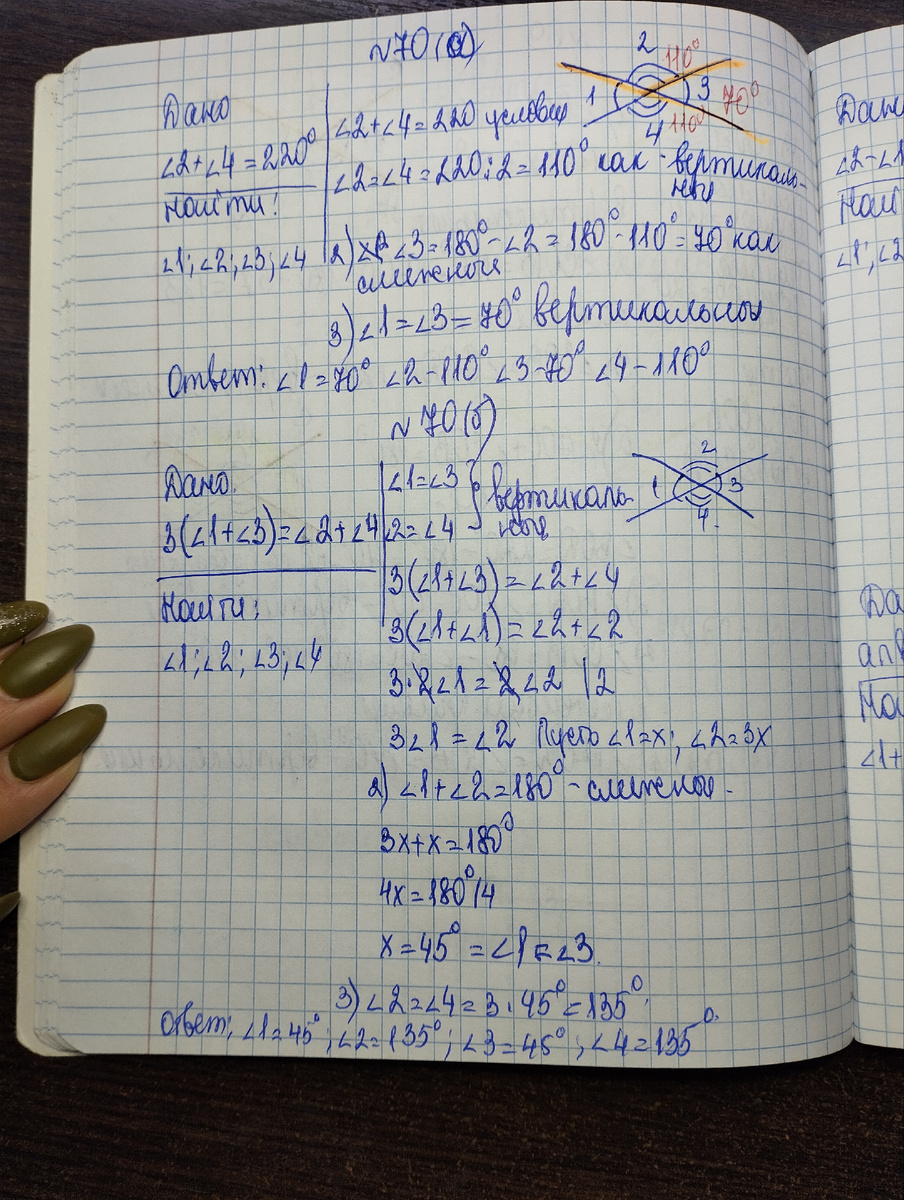 №70(а)
Дано
∠2+∠4=220°
Найти:
∠1;∠2;∠3;∠4
∠2+∠4=220 условия
∠2=∠4=220:2=110° как вертикаль-
ны
2) ∠3=180°-∠2=180°-110°=70° как
смежные
3) ∠1=∠3=70° вертикальны
2 110°
1 3 70°
4 110°
Ответ: ∠1=70° ∠2-110° ∠3-70° ∠4-110°
№70(б)
Дано.
3(∠1+∠3)=∠2+∠4
Найти:
∠1;∠2;∠3;∠4
∠1=∠3
∠2=∠4
вертикаль-
ные
2
1 3
4
3(∠1+∠3)=∠2+∠4
3(∠1+∠1)=∠2+∠2
3·2∠1=2∠2 |2
3∠1=∠2 Пусть ∠1=x; ∠2=3x
2) ∠1+∠2=180° - смежные.
3x+x=180°
4x=180°/4
x=45°=∠1=∠3.
3) ∠2=∠4=3·45°=135°
Ответ: ∠1=45°; ∠2=135°; ∠3=45°; ∠4=135°.
Дано
∠2-∠1
Най
∠1;∠2
Да
На
∠1+